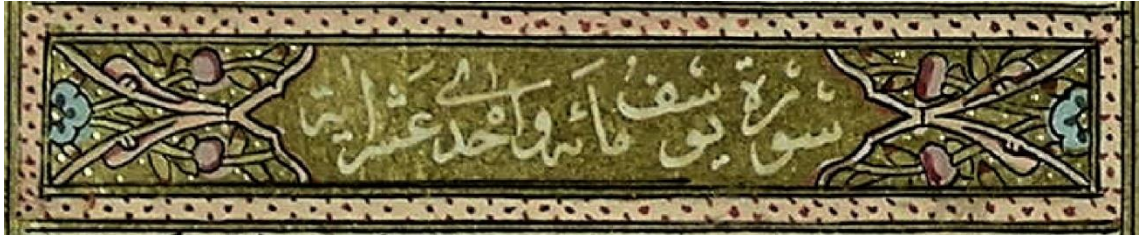 سورة يوسف مائة واحدى عشر اية